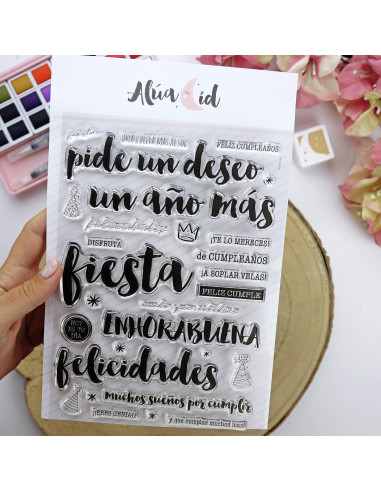 Alúa Cid
FELIZ CUMPLEAÑOS
pide un deseo
un año más
¡TE LO MERECES!
DISFRUTA
de CUMPLEAÑOS
fiesta
¡A SOPLAR VELAS!
FELIZ CUMPLE
HOY
ES TU
DÍA
ENHORABUENA
felicidades
Muchos sueños por cumplir
¡ERES GENIAL!
y que cumplas muchos más!